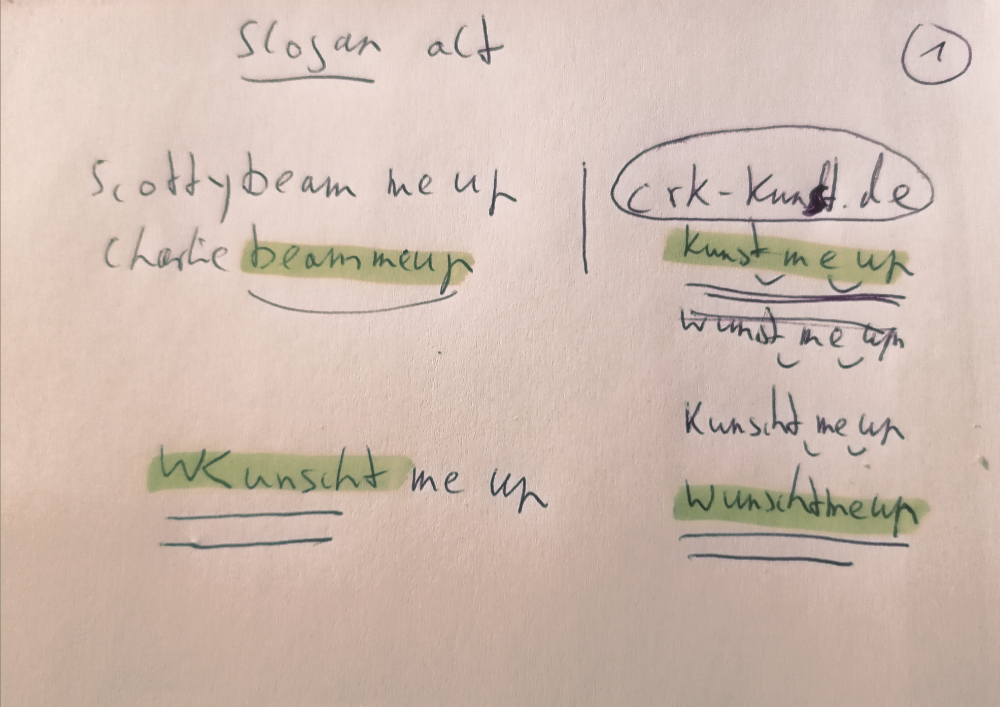 Slogan alt
1
Scotty beam me up
Charlie beam me up
WKunscht me up
crk-Kunst.de
Kunst me up
Wunst me up
Kunscht me up
Wunschtmeup